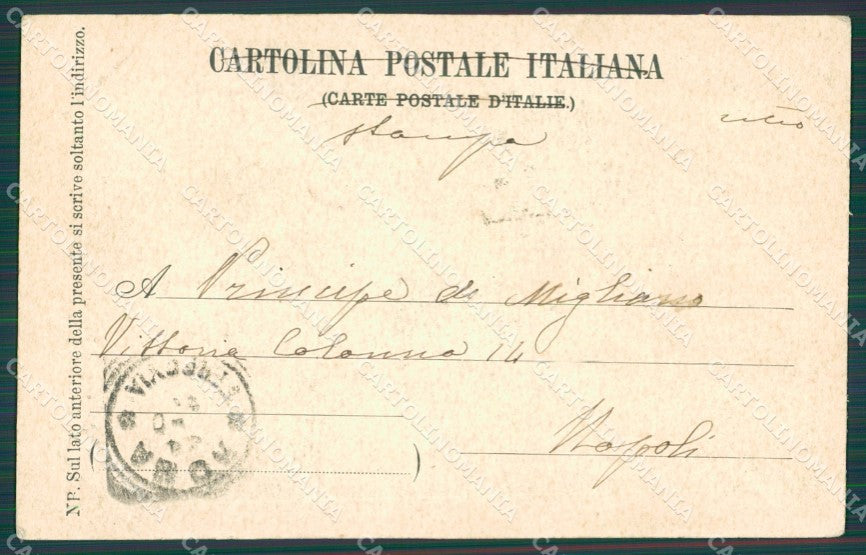 CARTOLINA POSTALE ITALIANA
(CARTE POSTALE D'ITALIE.)
stampa
A Principe di Migliano
Vittoria Colonna 14
Napoli
NB. Sul lato anteriore della presente si scrive soltanto l'indirizzo.
FERROVIA
ROMA
CARTOLINOMANIA